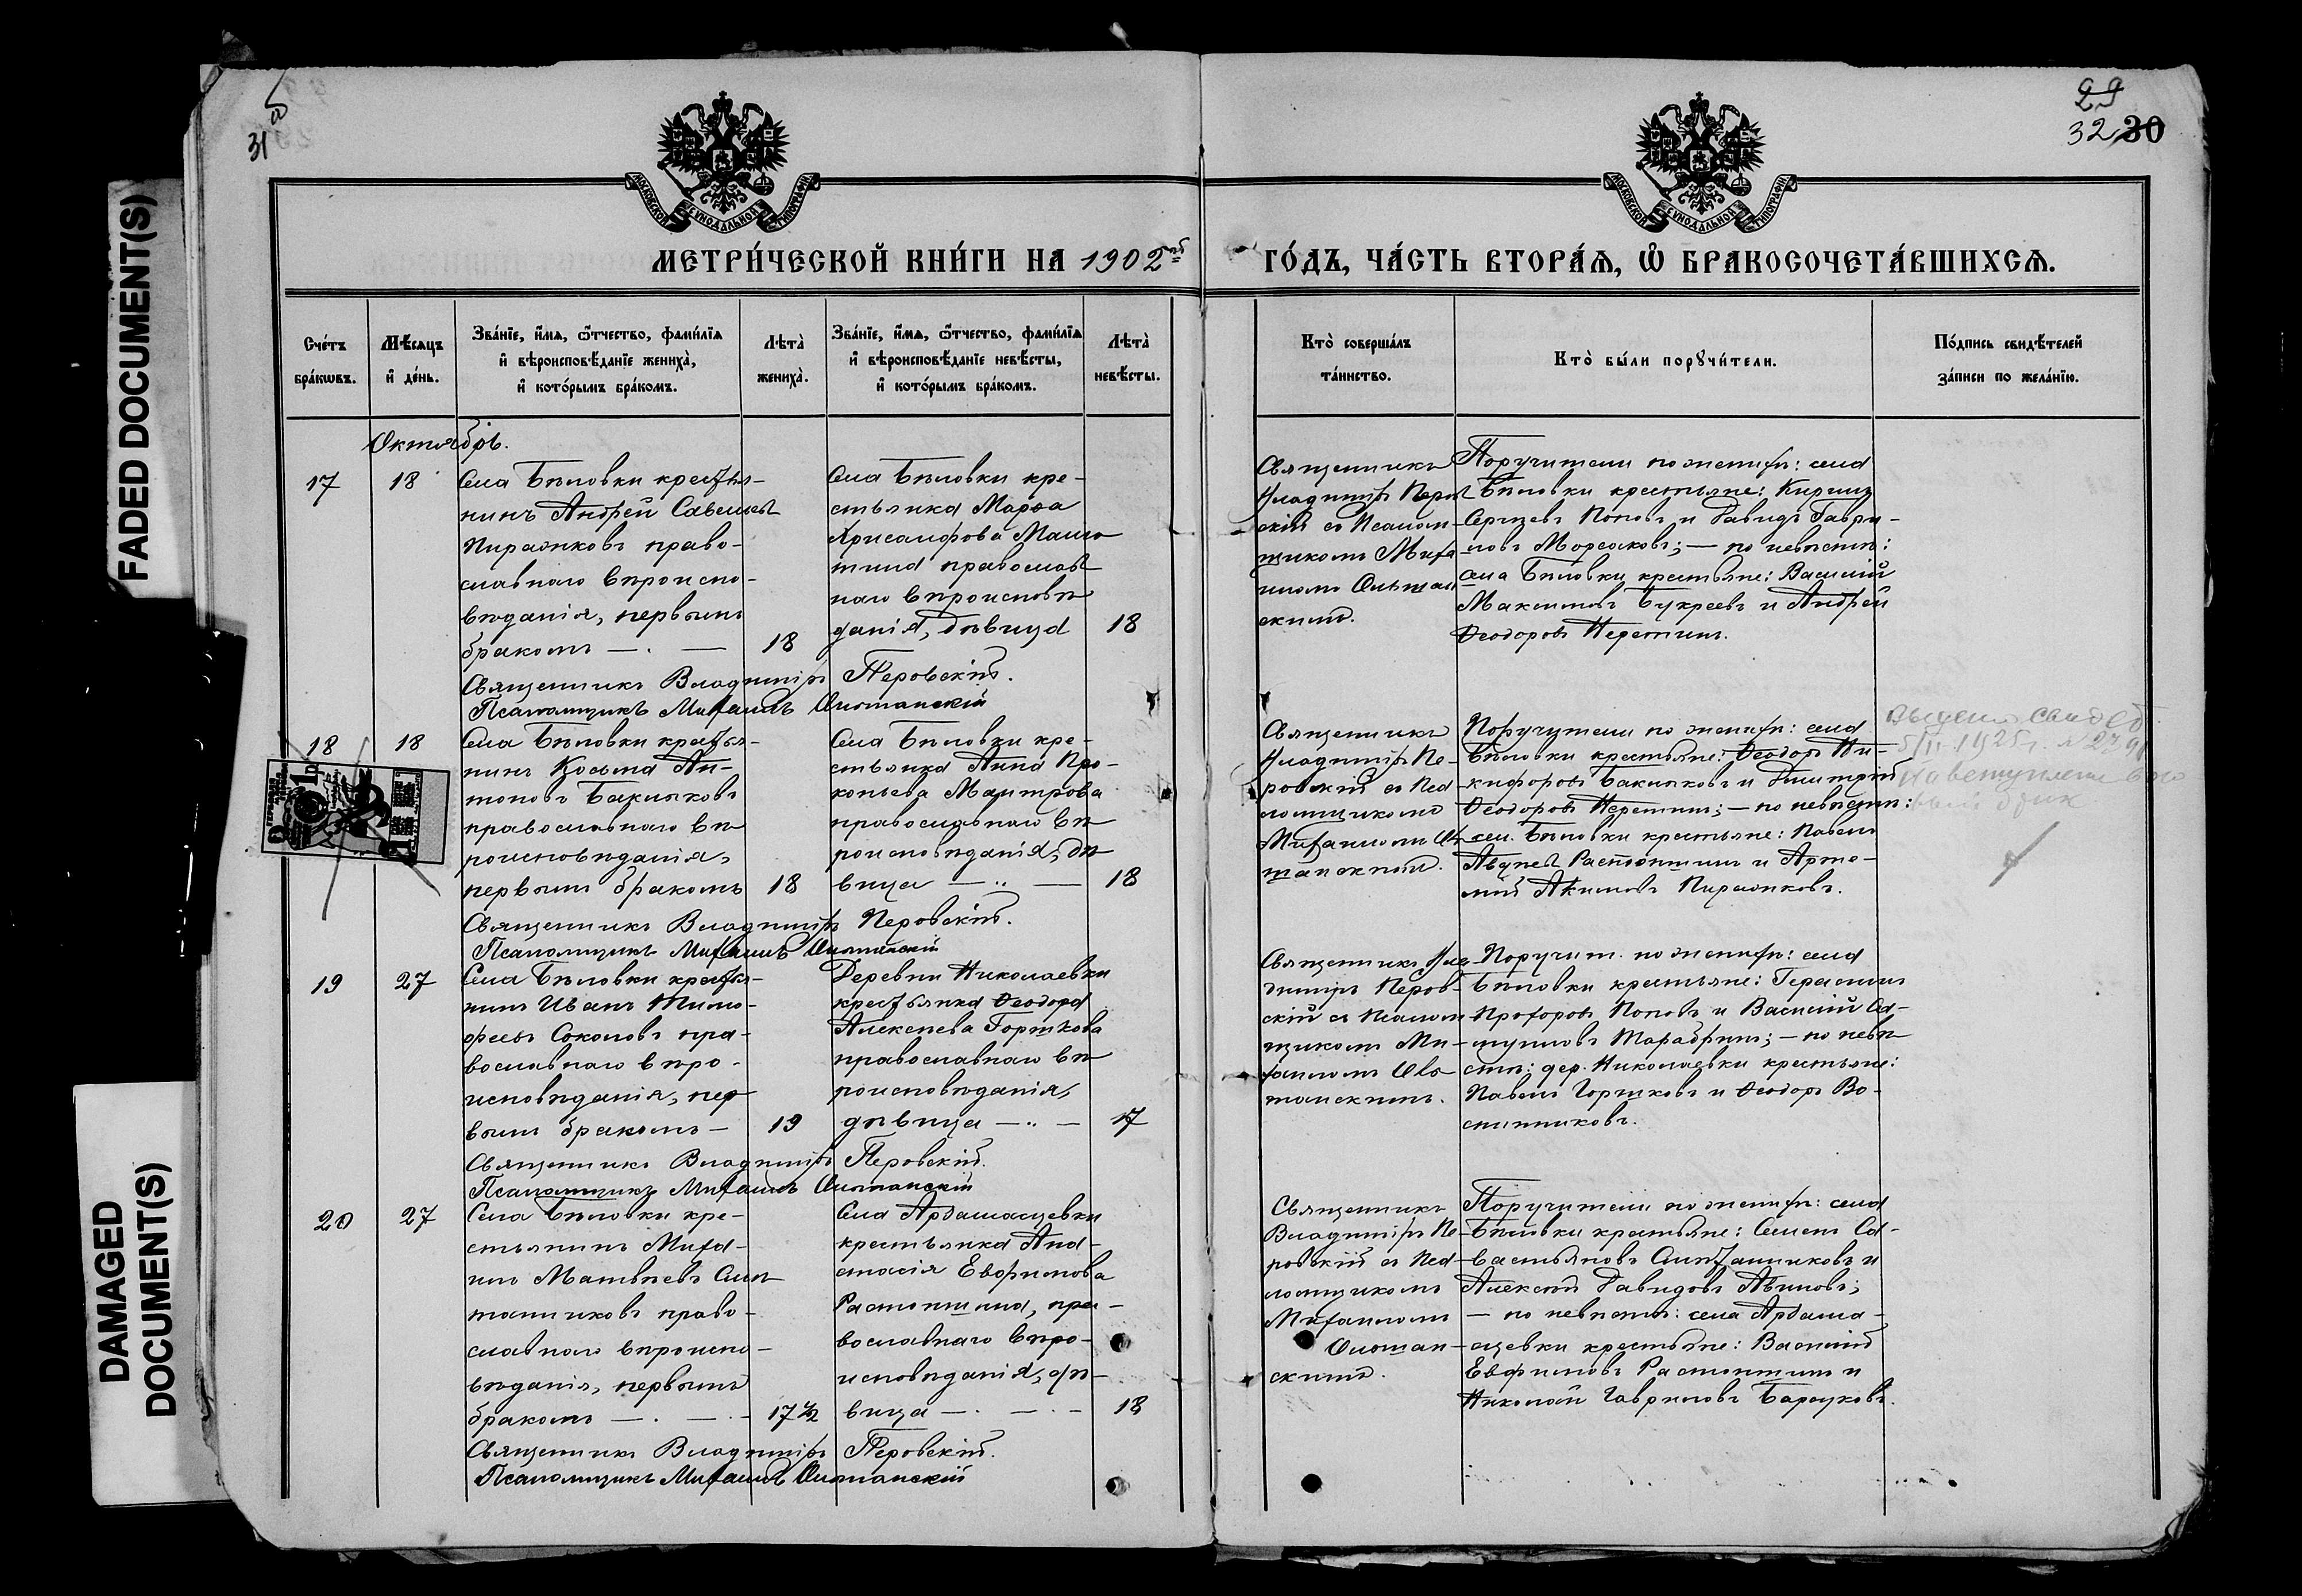 31 об
29
32 30
FADED DOCUMENT(S)
DAMAGED DOCUMENT(S)
МОСКОВСКОЙ СѴНОДАЛЬНОЙ ТИПОГРАФІИ
МОСКОВСКОЙ СѴНОДАЛЬНОЙ ТИПОГРАФІИ
МЕТРИ́ЧЕСКОЙ КНИ́ГИ НА 1902й ГО́ДЪ, ЧА́СТЬ ВТОРА́Ѧ, Ѽ БРАКОСОЧЕТА́ВШИХСѦ.
Сче́тъ бра́кѡвъ.
Мѣ́сѧцъ и҆ де́нь.
Зва́нїе, и҆́мѧ, ѻ҆́тчество, фами́лїѧ
и҆ вѣроисповѣ́данїе жениха̀,
и҆ кото́рымъ бра́комъ.
Лѣта̀ жениха̀.
Зва́нїе, и҆́мѧ, ѻ҆́тчество, фами́лїѧ
и҆ вѣроисповѣ́данїе невѣ́сты,
и҆ кото́рымъ бра́комъ.
Лѣта̀ невѣ́сты.
Кто̀ соверша́лъ та́инство.
Кто̀ бы́ли порꙋчи́тели.
По́дпись свидѣ́телей
за́писи по жела́нїю.
Октябрь.
17
18
Села Бѣловки крестья-
нинъ Андрей Савельевъ
Пирожковъ право-
славнаго вѣроиспо-
вѣданія, первымъ
бракомъ — . — 18
Села Бѣловки кре-
стьянка Марѳа
Хрисанфова
православ
наго вѣроисповѣ
данія, дѣвица 18
Священникъ
Владимiръ Перов
скій съ Псалом-
щикомъ Миха
иломъ Ольшан
скимъ.
Поручители по женихѣ: села
Бѣловки крестьяне: Кириллъ
Сергѣевъ Поповъ и Давидъ Гаври-
ловъ; — по невѣстѣ:
села Бѣловки крестьяне: Василій
Максимовъ Букреевъ и Андрей
Ѳеодоровъ Неретинъ.
Священникъ Владиміръ Перовскій.
Псаломщикъ Михаилъ Ольшанскій
18
18
Села Бѣловки крестья-
нинъ Козьма Ан-
тоновъ Бакланковъ
православнаго вѣ
роисповѣданія,
первымъ бракомъ 18
Села Бѣловки кре-
стьянка Анна Про-
копьева
православнаго вѣ
роисповѣданія, дѣ
вица — .. — 18
Священникъ
Владиміръ Пе-
ровскій съ Пса
ломщикомъ
Михаиломъ Оль
шанскимъ.
Поручители по женихѣ: села
Бѣловки крестьяне: Ѳеодоръ Ни-
кифоровъ и Димитрій
Ѳеодоровъ Неретинъ; — по невѣстѣ:
сел. Бѣловки крестьяне: Павелъ
Авдѣевъ Растопшинъ и Арте-
мій Акимовъ Пирожковъ.
Священникъ Владиміръ Перовскій.
Псаломщикъ Михаилъ Ольшанскій
19
27
Села Бѣловки крестья-
нинъ Иванъ Тимо-
феевъ Соколовъ пра-
вославнаго вѣро-
исповѣданія, пер
вымъ бракомъ — 19
Деревни Николаевки
крестьянка Ѳеодора
Алексѣева Горшкова
православнаго вѣ
роисповѣданія,
дѣвица — .. — 17
Священникъ Вла
диміръ Перов-
скій съ Псалом
щикомъ Ми-
хаиломъ Оль
шанскимъ.
Поручит. по женихѣ: села
Бѣловки крестьяне: Герасимъ
Прохоровъ Поповъ и Василій
; — по невѣ
стѣ: дер. Николаевки крестьяне:
Павелъ Горшковъ и Ѳеодоръ
Священникъ Владиміръ Перовскій.
Псаломщикъ Михаилъ Ольшанскій
20
27
Села Бѣловки кре-
стьянинъ Миха-
илъ Матвѣевъ
право-
славнаго вѣроиспо-
вѣданія, первымъ
бракомъ — . — . - 17½
Села Ардамасцевки
крестьянка Ана-
стасія Евфимова
Растопшина, пра-
вославнаго вѣро-
исповѣданія, дѣ-
вица — . — . - 18
Священникъ
Владиміръ Пе-
ровскій съ Пса-
ломщикомъ
Михаиломъ
Ольшан-
скимъ.
Поручители по женихѣ: села
Бѣловки крестьяне: Семенъ Са-
вастьяновъ и
Алексѣй Давидовъ;
— по невѣстѣ: села Ардама-
сцевки крестьяне: Василій
Евфимовъ Растопшинъ и
Николай Гавриловъ Барсуковъ.
Священникъ Владиміръ Перовскій.
Псаломщикъ Михаилъ Ольшанскій